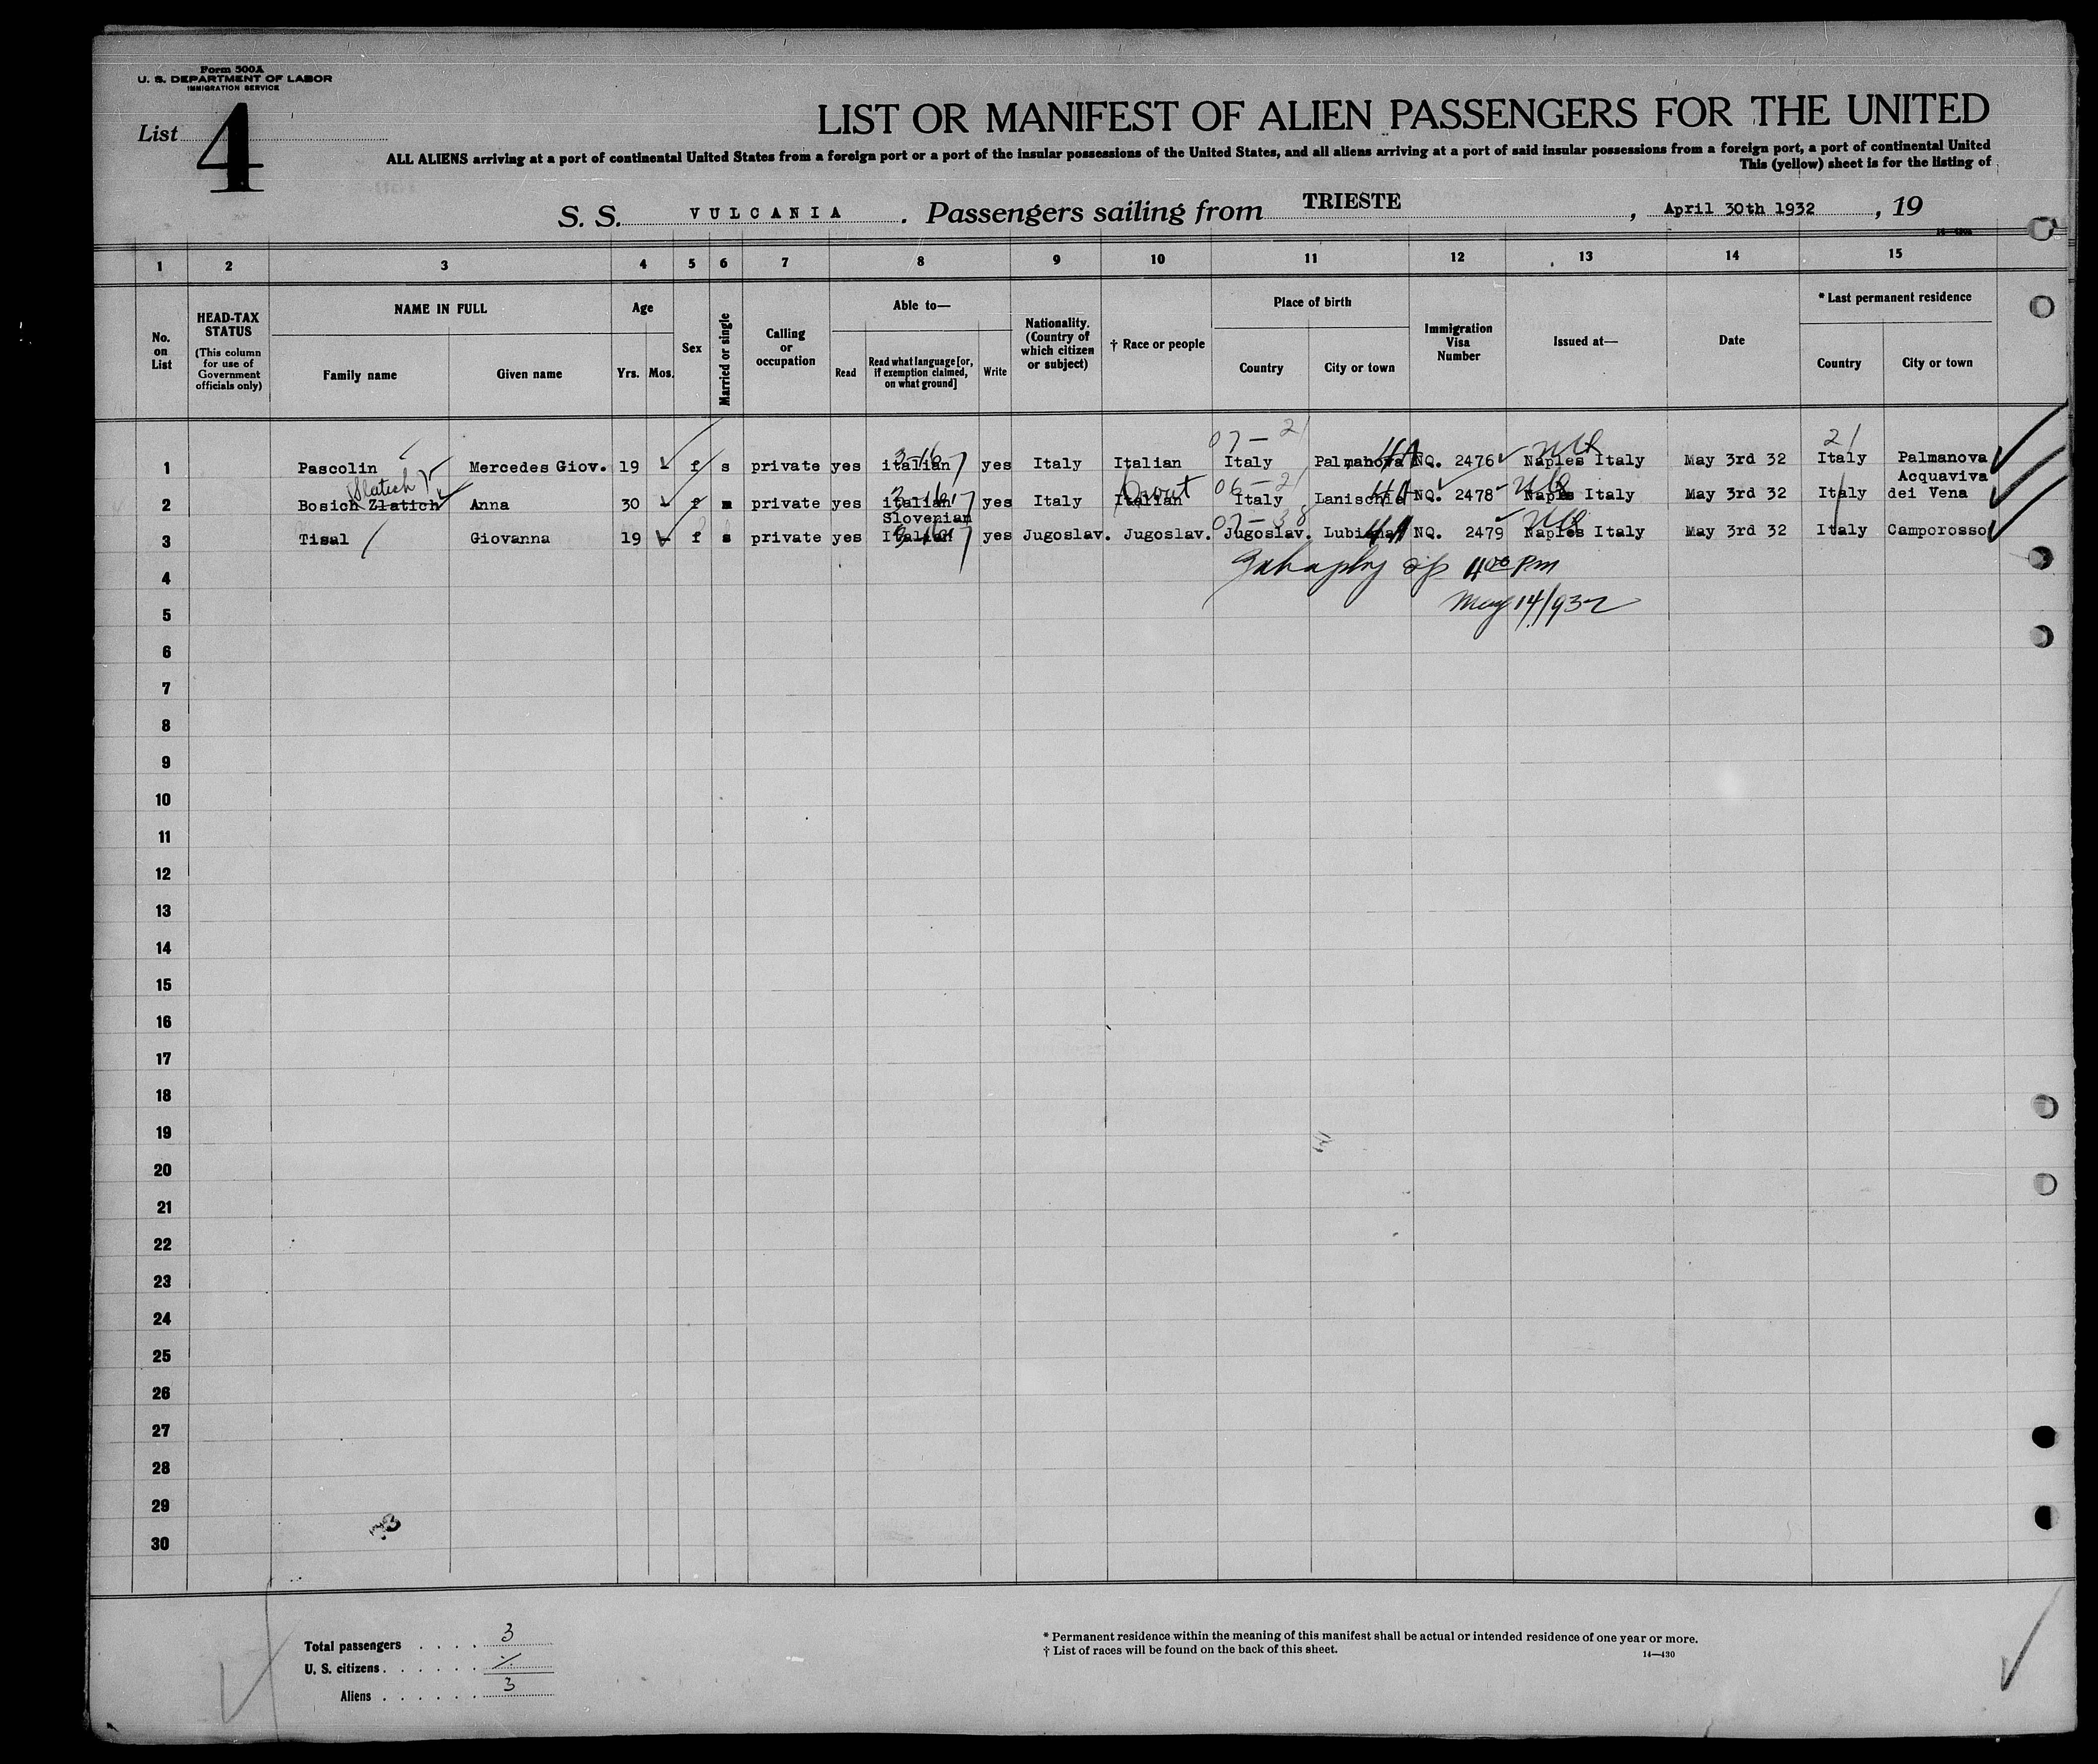 Form 500A
U. S. DEPARTMENT OF LABOR
IMMIGRATION SERVICE
List 4
LIST OR MANIFEST OF ALIEN PASSENGERS FOR THE UNITED
ALL ALIENS arriving at a port of continental United States from a foreign port or a port of the insular possessions of the United States, and all aliens arriving at a port of said insular possessions from a foreign port, a port of continental United
This (yellow) sheet is for the listing of
S. S. VULCANIA . Passengers sailing from TRIESTE , April 30th 1932 , 19
1 2 3 4 5 6 7 8 9 10 11 12 13 14 15
No. on List
HEAD-TAX STATUS
(This column for use of Government officials only)
NAME IN FULL
Family name
Given name
Age
Yrs. Mos.
Sex
Married or single
Calling or occupation
Able to—
Read
Read what language [or, if exemption claimed, on what ground]
Write
Nationality. (Country of which citizen or subject)
† Race or people
Place of birth
Country
City or town
Immigration Visa Number
Issued at—
Date
* Last permanent residence
Country
City or town
07 — 21
21
1 Pascolin Mercedes Giov. 19 f s private yes italian yes Italy Italian Italy Palmanova NQ. 2476 Naples Italy May 3rd 32 Italy Palmanova
Slatich
06 — 21
2 Bosich Zlatich Anna 30 f m private yes italian yes Italy Italian Italy Lanischie NQ. 2478 Naples Italy May 3rd 32 Italy Acquaviva dei Vena
07 — 38
3 Tisal Giovanna 19 f s private yes Slovenian Italian yes Jugoslav. Jugoslav. Jugoslav. Lubiana NQ. 2479 Naples Italy May 3rd 32 Italy Camporosso
4 4 00 Pm
5 May 14/932
6
7
8
9
10
11
12
13
14
15
16
17
18
19
20
21
22
23
24
25
26
27
28
29
30
Total passengers . . . . 3
U. S. citizens . . . . . .
Aliens . . . . . . 3
* Permanent residence within the meaning of this manifest shall be actual or intended residence of one year or more.
† List of races will be found on the back of this sheet.
14—430